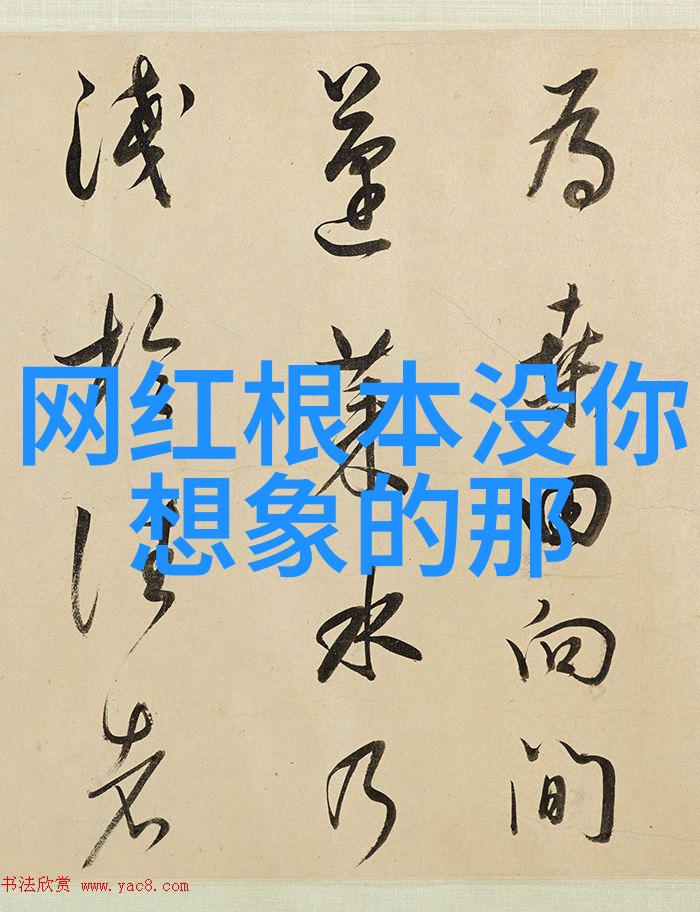 為桑田向間
蓬萊水乃
淺於往者
网红根本没你
想象的那
书法欣赏 www.yac8.com